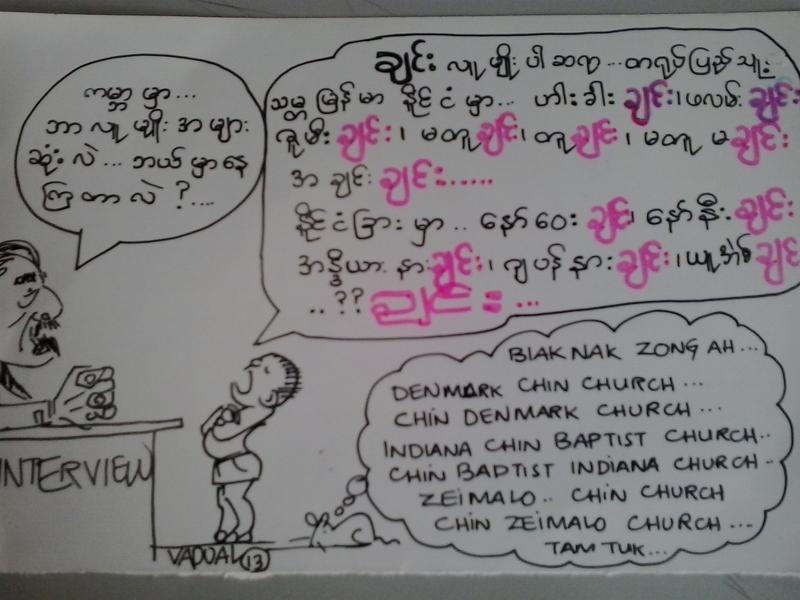 ကမ္ဘာ မှာ...
ဘာ လူ မျိုး အ များ
ဆုံး လဲ ... ဘယ် မှာ နေ
ကြ တာ လဲ ?....
ချင်း လူ မျိုး ပါ ဆရာ ... တရုပ်ပြည် သူ့
သမ္မ မြန် မာ နိုင် ငံ မှာ... ဟါး ခါး ချင်း၊ ဖလမ်း ချင်း
ဇူမီး ချင်း ၊ မတူ ချင်း၊ တူ ချင်း ၊ မတူ မ ချင်း
အ ချင်း ချင်း......
နိုင် ငံ ခြား မှာ .. နော် ဝေး ချင်း၊ နော် နီး ချင်း
အိန္ဒိယာ နား ချင်း ၊ ဂျပန် နား ချင်း ၊ ယူအဲစ် ချင်း
..?? ညှင်း ...
BIAK NAK ZONG AH...
DENMARK CHIN CHURCH ...
CHIN DENMARK CHURCH ...
INDIANA CHIN BAPTIST CHURCH..
CHIN BAPTIST INDIANA CHURCH ..
ZEIMALO.. CHIN CHURCH
CHIN ZEIMALO CHURCH ...
TAM TUK...
INTERVIEW
VADUAL 13